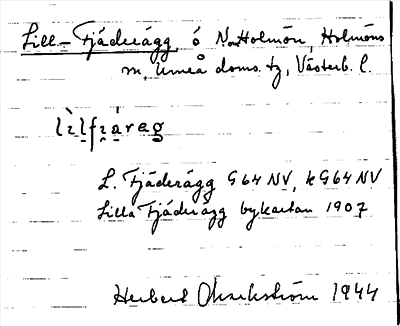 Lill-Fjäderägg, ö N om Holmön, Holmöns
sn, Umeå doms. tg, Västerb. l.
lìlfjä̀ræg
L. Fjäderägg G64 NV, kG64 NV
Lilla Fjäderägg bykartan 1907
Herbert 1944